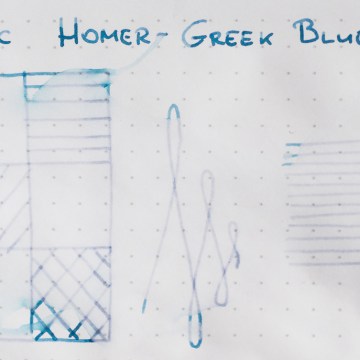 C HOMER- GREEK BLUE